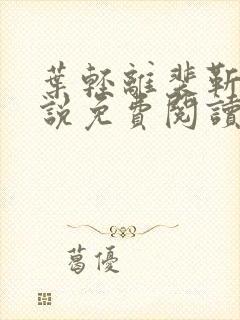 葉輕離裴靳
說免費閱讀
葛優